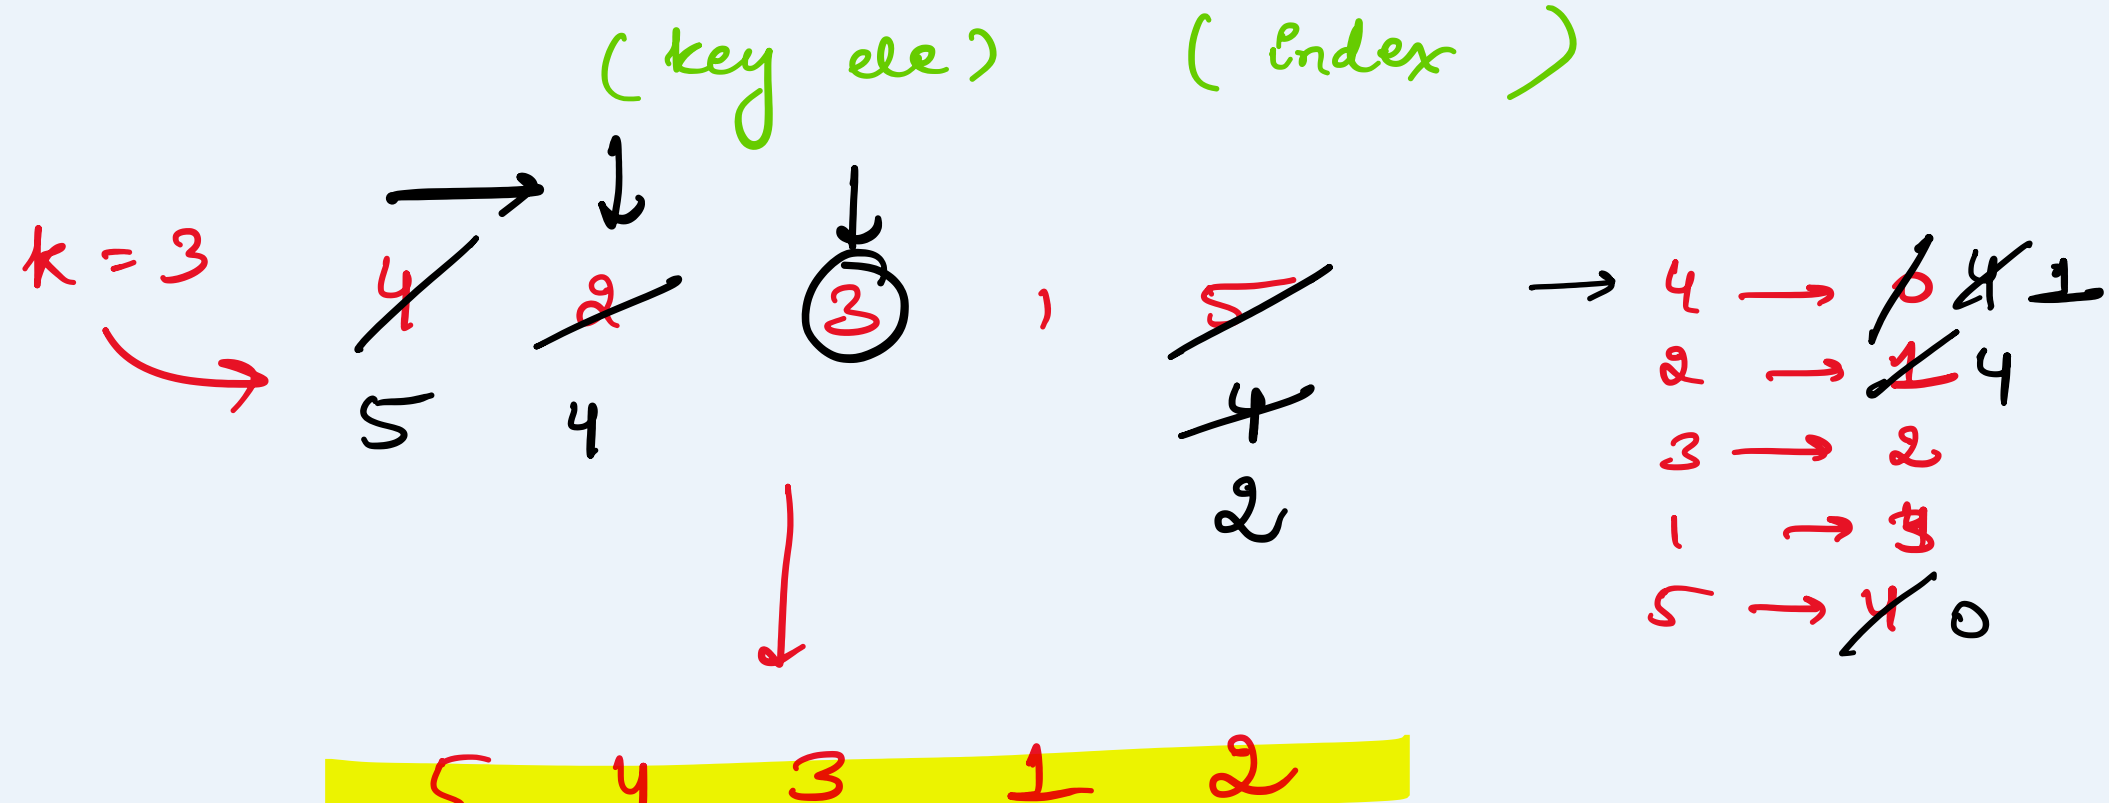 (key ele) (index)
k = 3 4 2 3 1 5 → 4 → 0 4 1
5 4 4 2 → 1 4
2 3 → 2
1 → 3
5 → 4 0
5 4 3 1 2